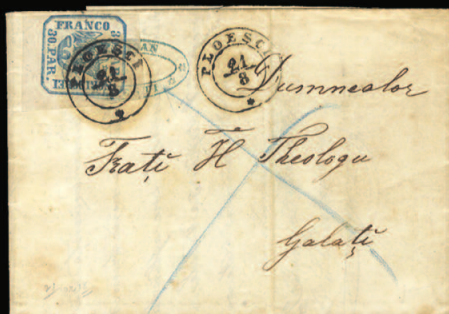 FRANCO
30 PAR
PLOESCI
21
8
PLOESCI
21
8
Dumnealor
Frați H Theologu
Galați